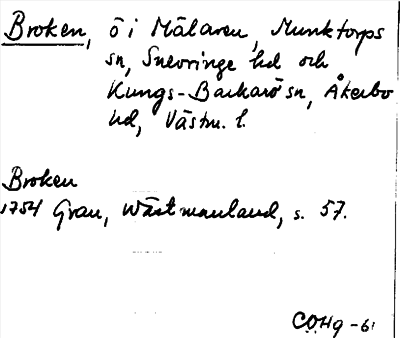 Broken, ö i Mälaren, Munktorps
sn, Snevringe hd och
Kungs-Barkarö sn, Åkerbo
hd, Västm. l.
Broken
1754 Grau, Wästmanland, s. 57.
C.O.Hg -61